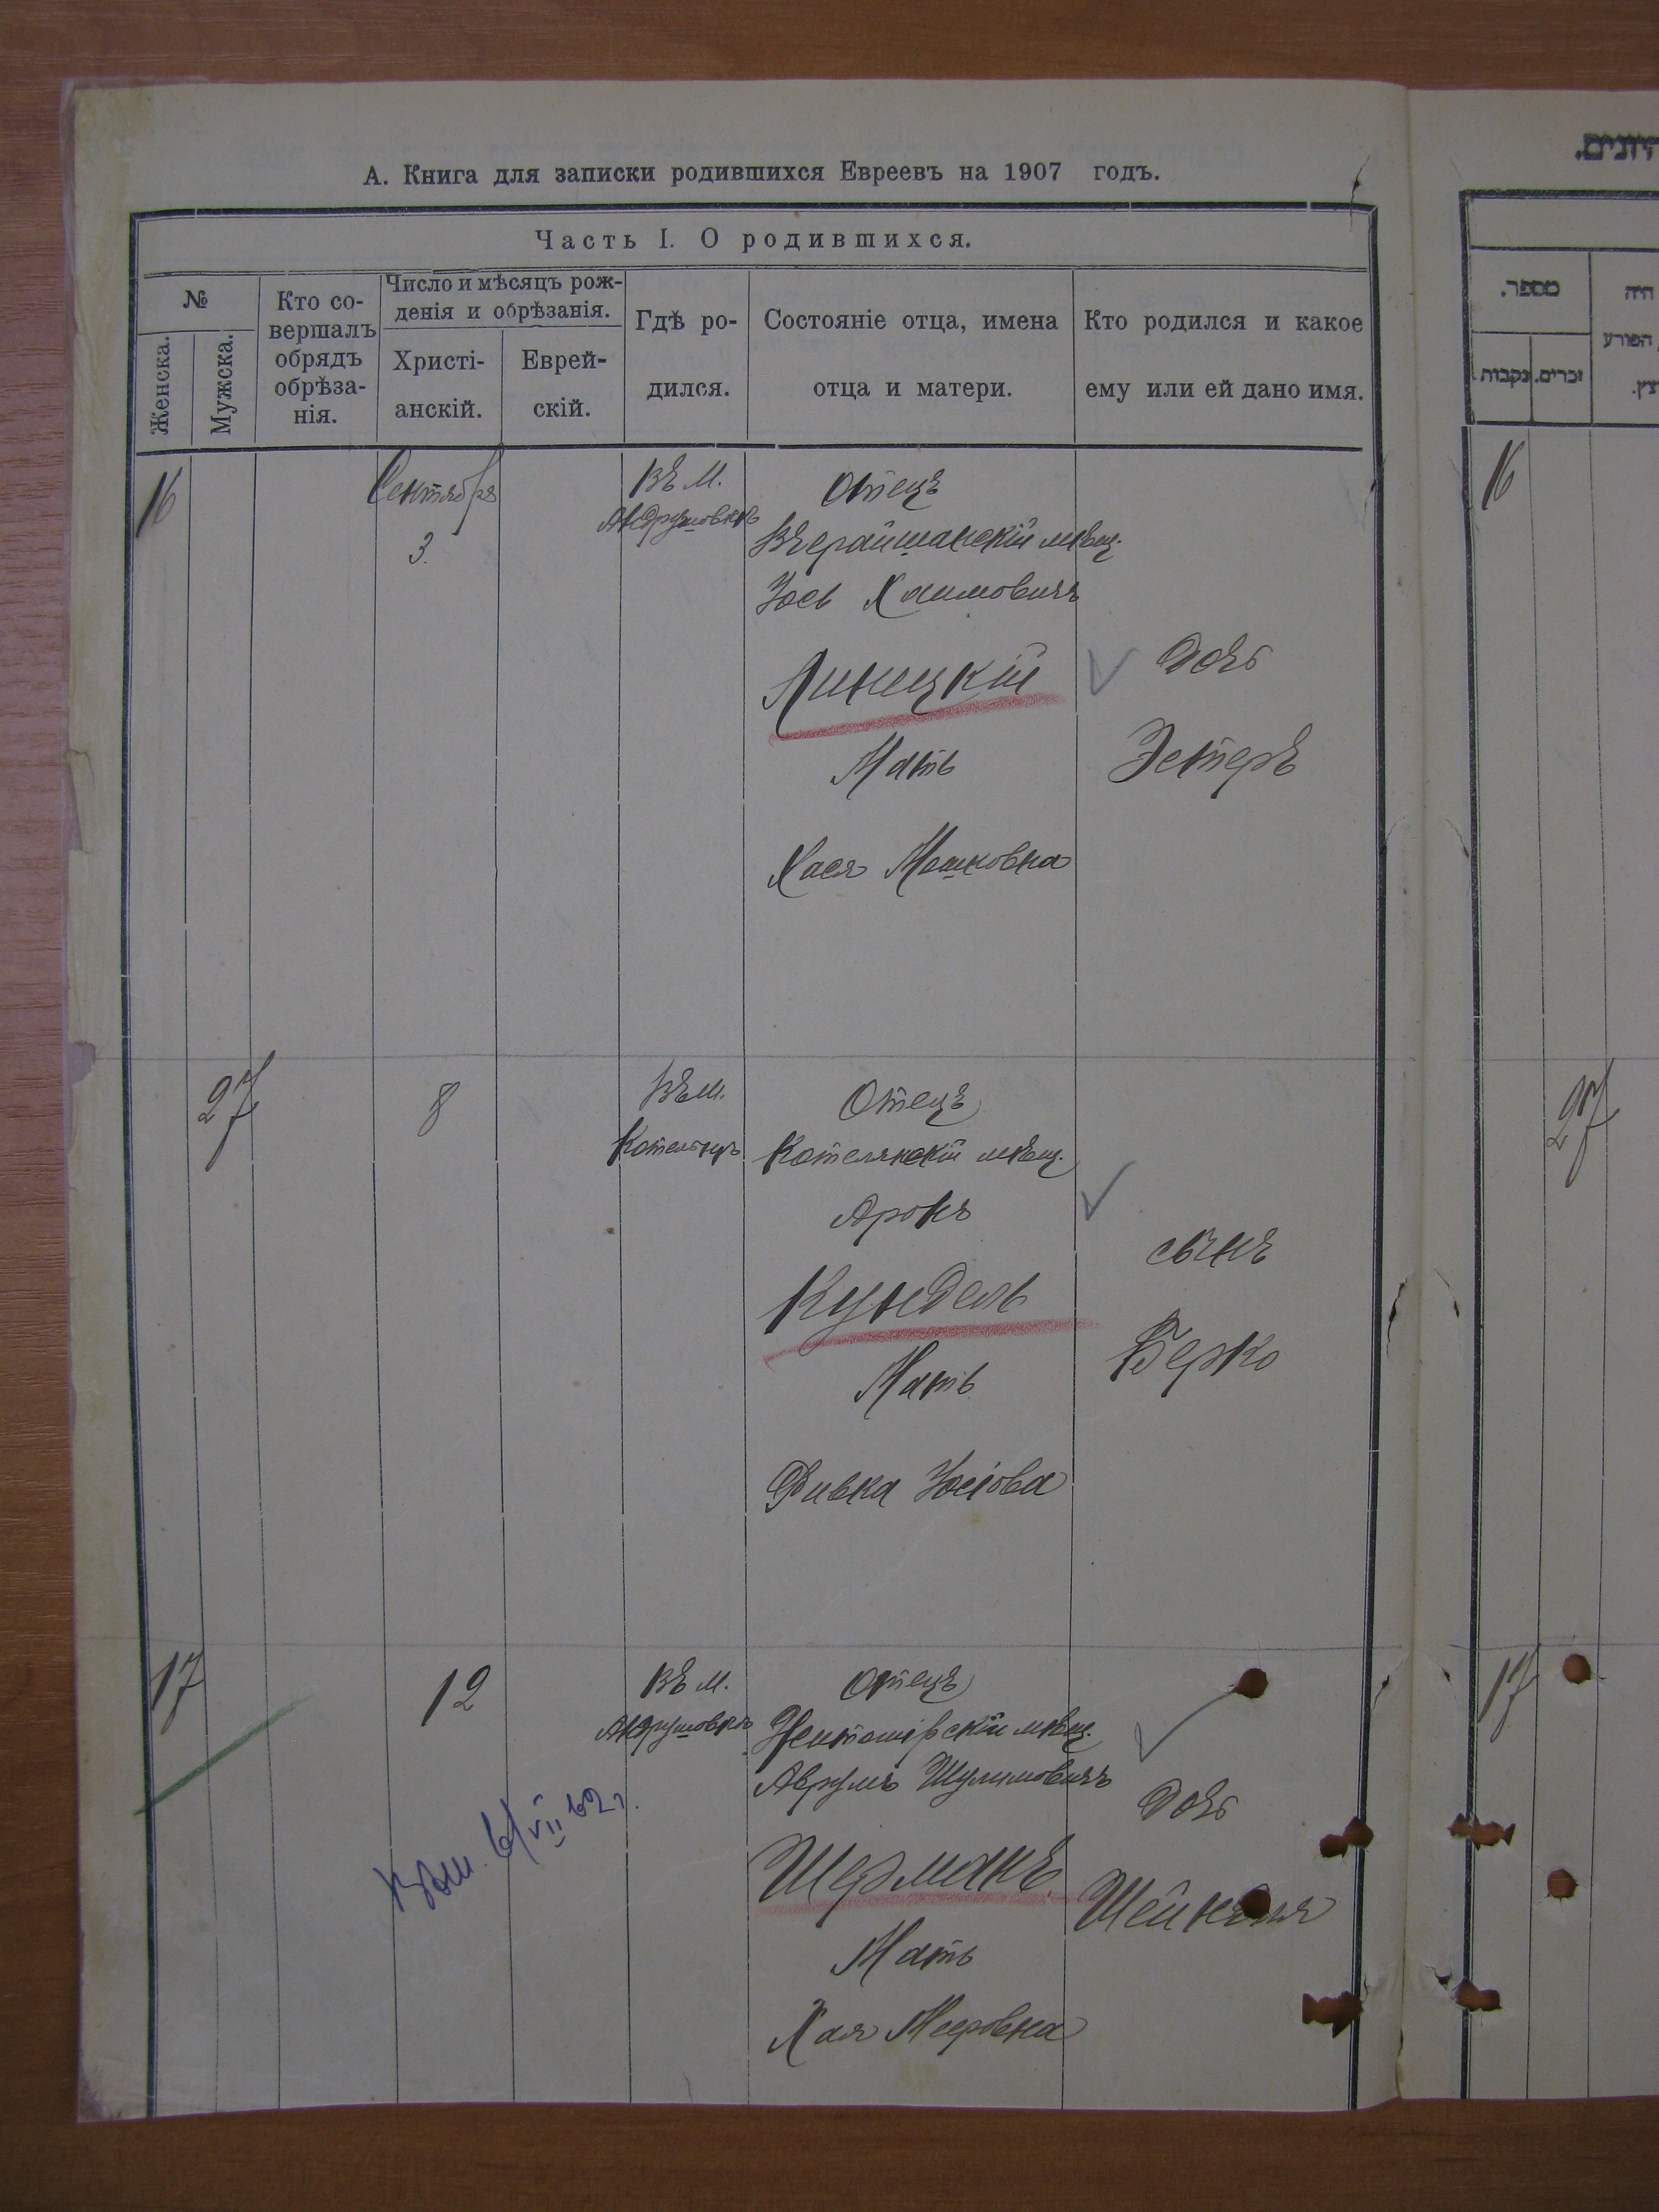 А. Книга для записки родившихся Евреевъ на 1907 годъ.
Часть I. О родившихся.
№
Женска.
Мужска.
Кто со-
вершалъ
обрядъ
обрѣза-
нія.
Число и мѣсяцъ рож-
денія и обрѣзанія.
Христі-
анскій.
Еврей-
скій.
Гдѣ ро-
дился.
Состояніе отца, имена
отца и матери.
Кто родился и какое
ему или ей дано имя.
16
Сентября
3.
Въ м.
Андрушовкѣ
Отецъ
мѣщ.
Іось Хаимовичъ
Линецкій
Мать
Хася Мошковна
Дочь
Эстеръ
27
8
Въ м.
Отецъ
Котелянскій мѣщ.
Аронъ
Кундель
Мать
Ривка Іосіова
сынъ
Берко
17
12
Въ м.
Андрушовкѣ
Отецъ
мѣщ.
Аврумъ Шулимовичъ
Шерманъ
Мать
Хая Мееровна
Дочь
6/VII 62 г.
היונים.
מספר.
זכרים.
נקבות
היה
הפורע
16
27
17